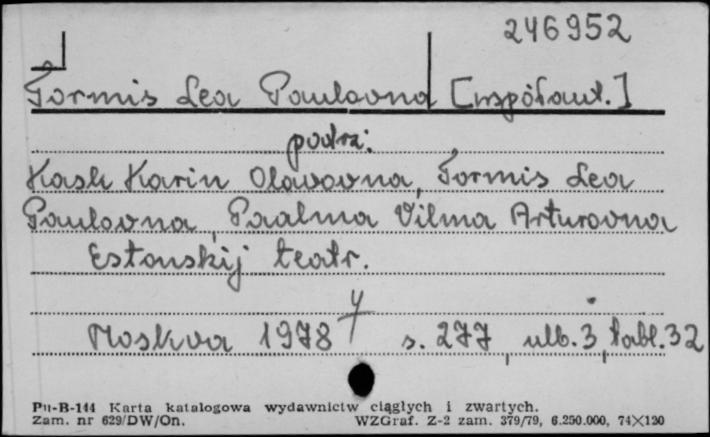 246952
Tormis Lea Paulovna [współaut.]
patrz:
Kask Karin Olavovna, Tormis Lea
Paulovna, Paalma Vilma Arturovna
Estonskij teatr.
Moskva 1978 s. 277, ulb. 3, tabl. 32
Pu-B-144 Karta katalogowa wydawnictw ciągłych i zwartych.
Zam. nr 629/DW/On. WZGraf. Z-2 zam. 379/79, 6.250.000, 74×120